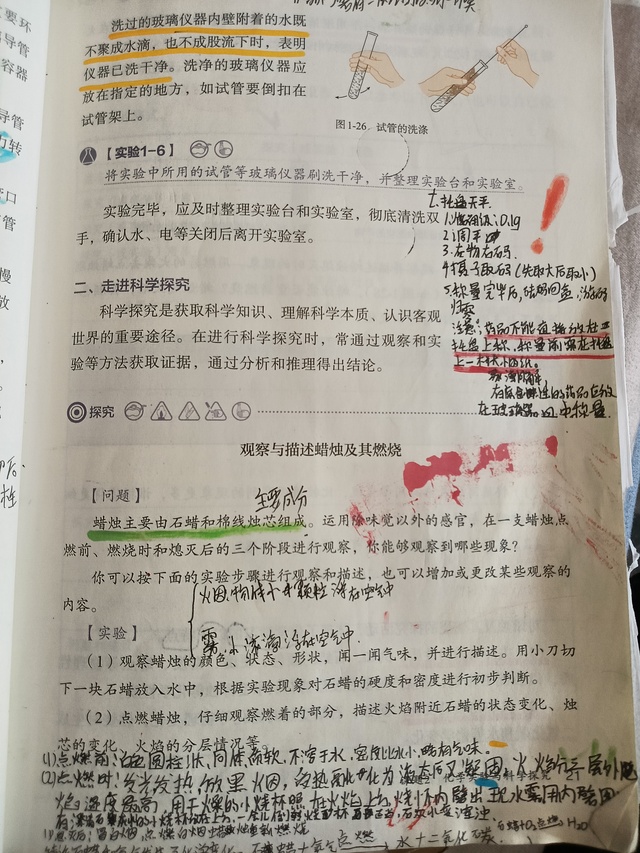 洗过的玻璃仪器内壁附着的水既
不聚成水滴，也不成股流下时，表明
仪器已洗干净。洗净的玻璃仪器应
放在指定的地方，如试管要倒扣在
试管架上。
图1-26 试管的洗涤
【实验1-6】
将实验中所用的试管等玻璃仪器刷洗干净，并整理实验台和实验室。
实验完毕，应及时整理实验台和实验室，彻底清洗双
手，确认水、电等关闭后离开实验室。
托盘天平
1.准确值：0.1g
2.调平
3.左物右码
4.镊子取码（先取大后取小）
5.称量完毕后，砝码回盒，游码
归零
注意：药品不能直接放在
托盘上称，称量前应在托盘
上一样大小的纸。
在玻璃器皿中称量
二、走进科学探究
科学探究是获取科学知识、理解科学本质、认识客观
世界的重要途径。在进行科学探究时，常通过观察和实
验等方法获取证据，通过分析和推理得出结论。
探究
观察与描述蜡烛及其燃烧
【问题】
主要成分
蜡烛主要由石蜡和棉线烛芯组成。运用除味觉以外的感官，在一支蜡烛点
燃前、燃烧时和熄灭后的三个阶段进行观察，你能够观察到哪些现象？
你可以按下面的实验步骤进行观察和描述，也可以增加或更改某些观察的
内容。
烟：物质小颗粒浮在空气中
【实验】
雾：小液滴浮在空气中
（1）观察蜡烛的颜色、状态、形状，闻一闻气味，并进行描述。用小刀切
下一块石蜡放入水中，根据实验现象对石蜡的硬度和密度进行初步判断。
（2）点燃蜡烛，仔细观察燃着的部分，描述火焰附近石蜡的状态变化、烛
芯的变化、火焰的分层情况等
(1)点燃前：白色圆柱状，固体，质软，不溶于水，密度比水小，略有气味。
(2)点燃时：发光发热，放黑烟，受热融化为液态后又凝固，火焰分三层，外
科学探究 21
焰温度最高，用干燥的小烧杯照在火焰上方，烧杯内壁出现水雾，用内壁
点燃 水+二氧化碳